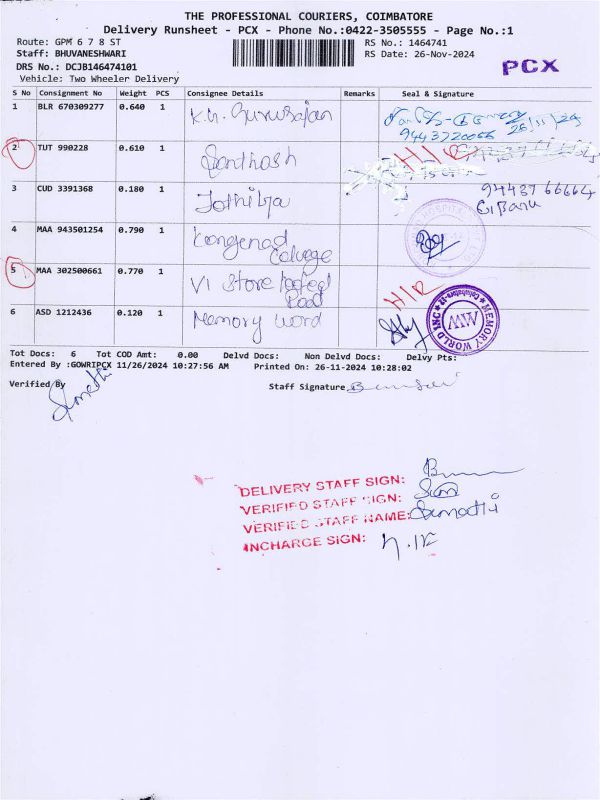 THE PROFESSIONAL COURIERS, COIMBATORE
Delivery Runsheet - PCX - Phone No.:0422-3505555 - Page No.:1
Route: GPM 6 7 8 ST RS No.: 1464741
Staff: BHUVANESHWARI RS Date: 26-Nov-2024
DRS No.: DCJB146474101 PCX
Vehicle: Two Wheeler Delivery
S No Consignment No Weight PCS Consignee Details Remarks Seal & Signature
1 BLR 670309277 0.640 1 K.G. Gurusajan
9443720066 26/11/24
2 TUT 990228 0.610 1 Santhosh H/R
3 CUD 3391368 0.180 1 Jothi 9443766664
G. Banu
4 MAA 943501254 0.790 1 Kongenad
College
5 MAA 302500661 0.770 1 VI Store H/R
Road
6 ASD 1212436 0.120 1 Memory word MEMORY WORLD INC Coimbatore-12 MW
Tot Docs: 6 Tot COD Amt: 0.00 Delvd Docs: Non Delvd Docs: Delvy Pts:
Entered By :GOWRIPCX 11/26/2024 10:27:56 AM Printed On: 26-11-2024 10:28:02
Verified By Staff Signature
DELIVERY STAFF SIGN:
VERIFIED STAFF SIGN:
VERIFIED STAFF NAME: Sumathi
INCHARGE SIGN: